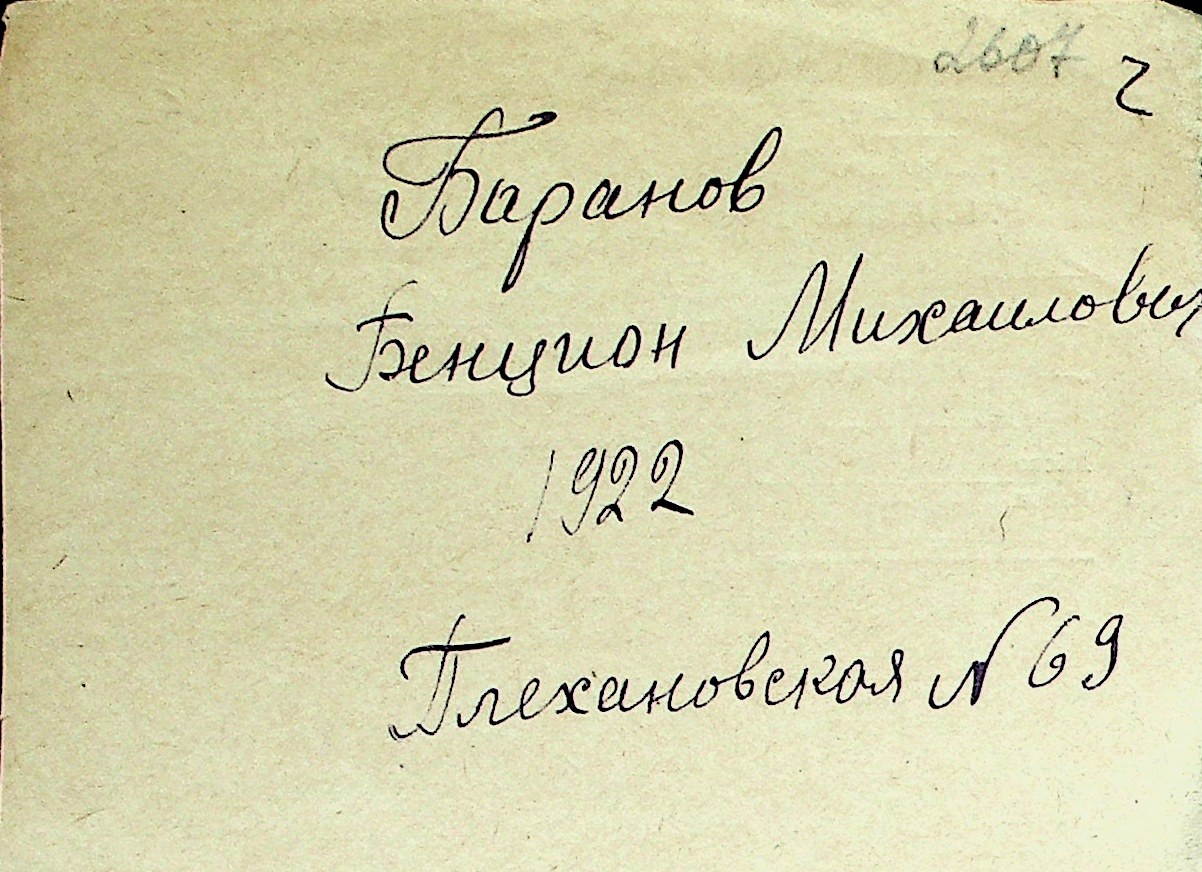 2607 ч
Баранов
Бенцион Михаилович
1922
Плехановская N 69